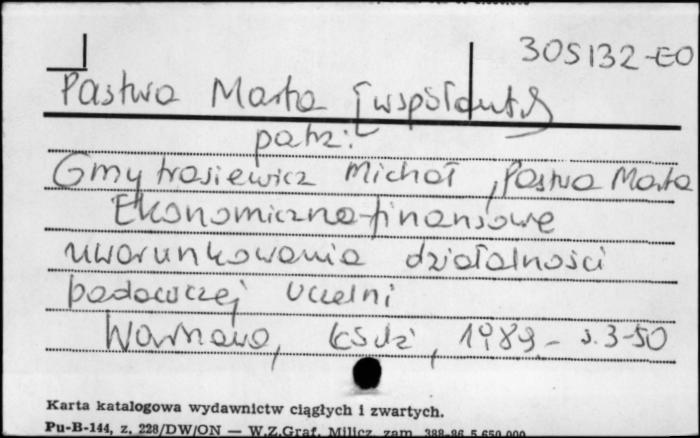 305132-EO
Pastwa Marta [współaut.]
patrz:
Gmytrasiewicz Michał, Pastwa Marta
Ekonomiczno-finansowe
uwarunkowania działalności
badawczej uczelni
Warszawa, 1989. - s. 3-50
Karta katalogowa wydawnictw ciągłych i zwartych.
Pu-B-144, z. 228/DW/ON — W.Z.Graf. Milicz, zam. 388-86 5.650.000